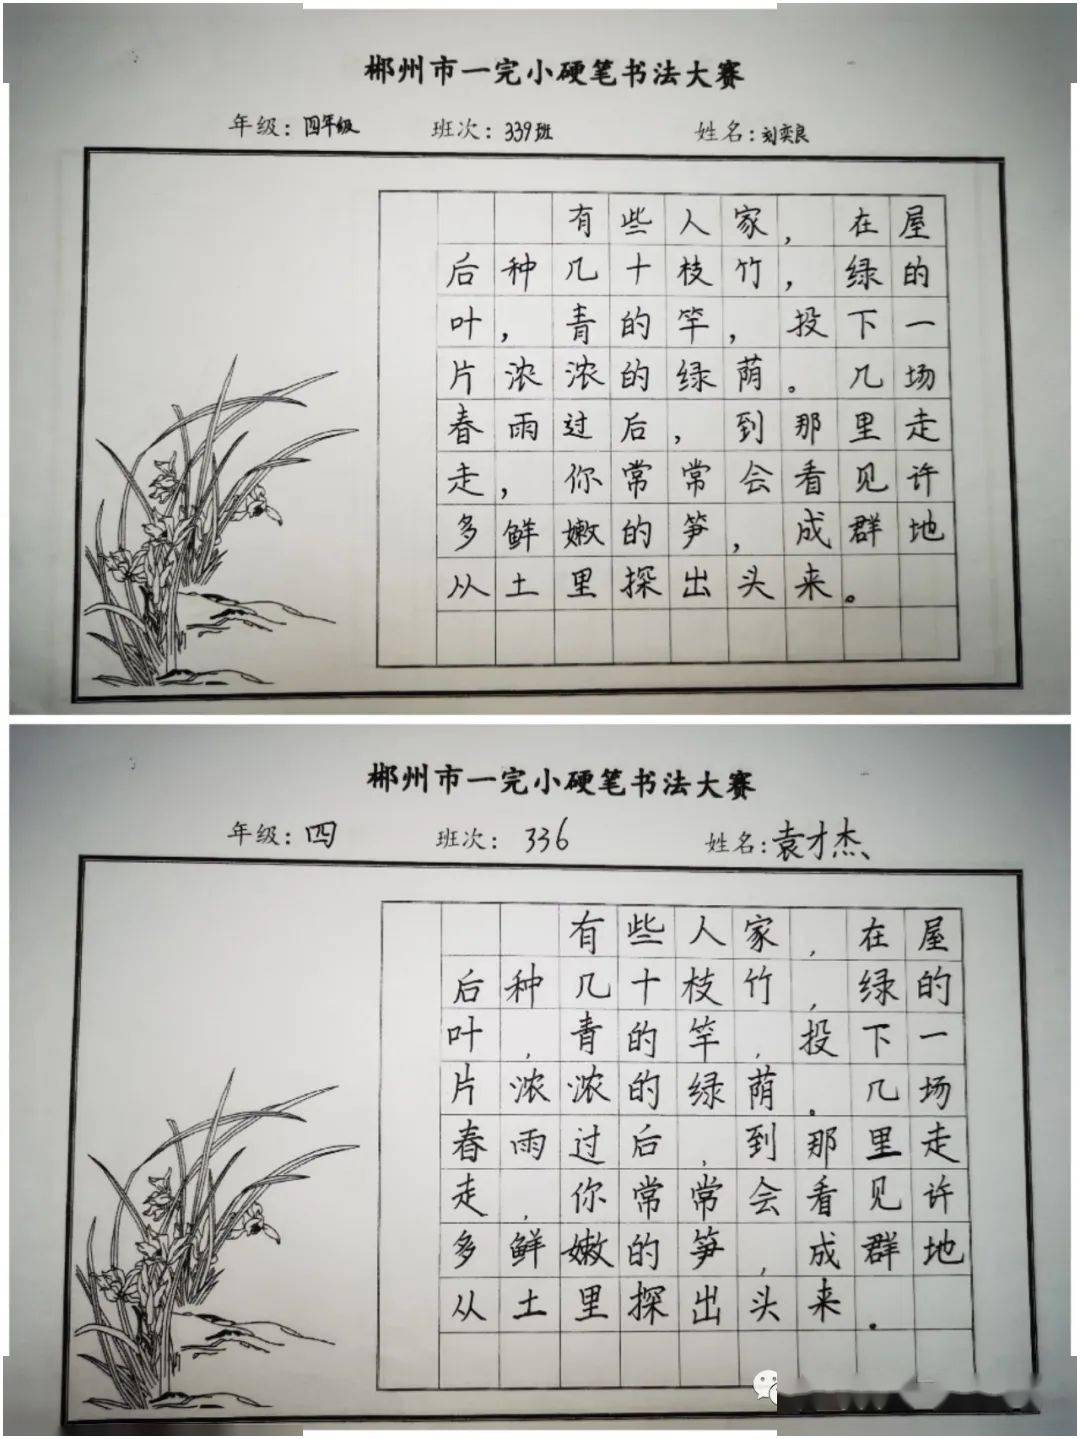 郴州市一完小硬笔书法大赛
年级：四年级 班次：339班 姓名：刘奕良
有些人家，在屋
后种几十枝竹，绿的
叶，青的竿，投下一
片浓浓的绿荫。几场
春雨过后，到那里走
走，你常常会看见许
多鲜嫩的笋，成群地
从土里探出头来。
郴州市一完小硬笔书法大赛
年级：四 班次：336 姓名：袁才杰
有些人家，在屋
后种几十枝竹，绿的
叶，青的竿，投下一
片浓浓的绿荫。几场
春雨过后，到那里走
走，你常常会看见许
多鲜嫩的笋，成群地
从土里探出头来。